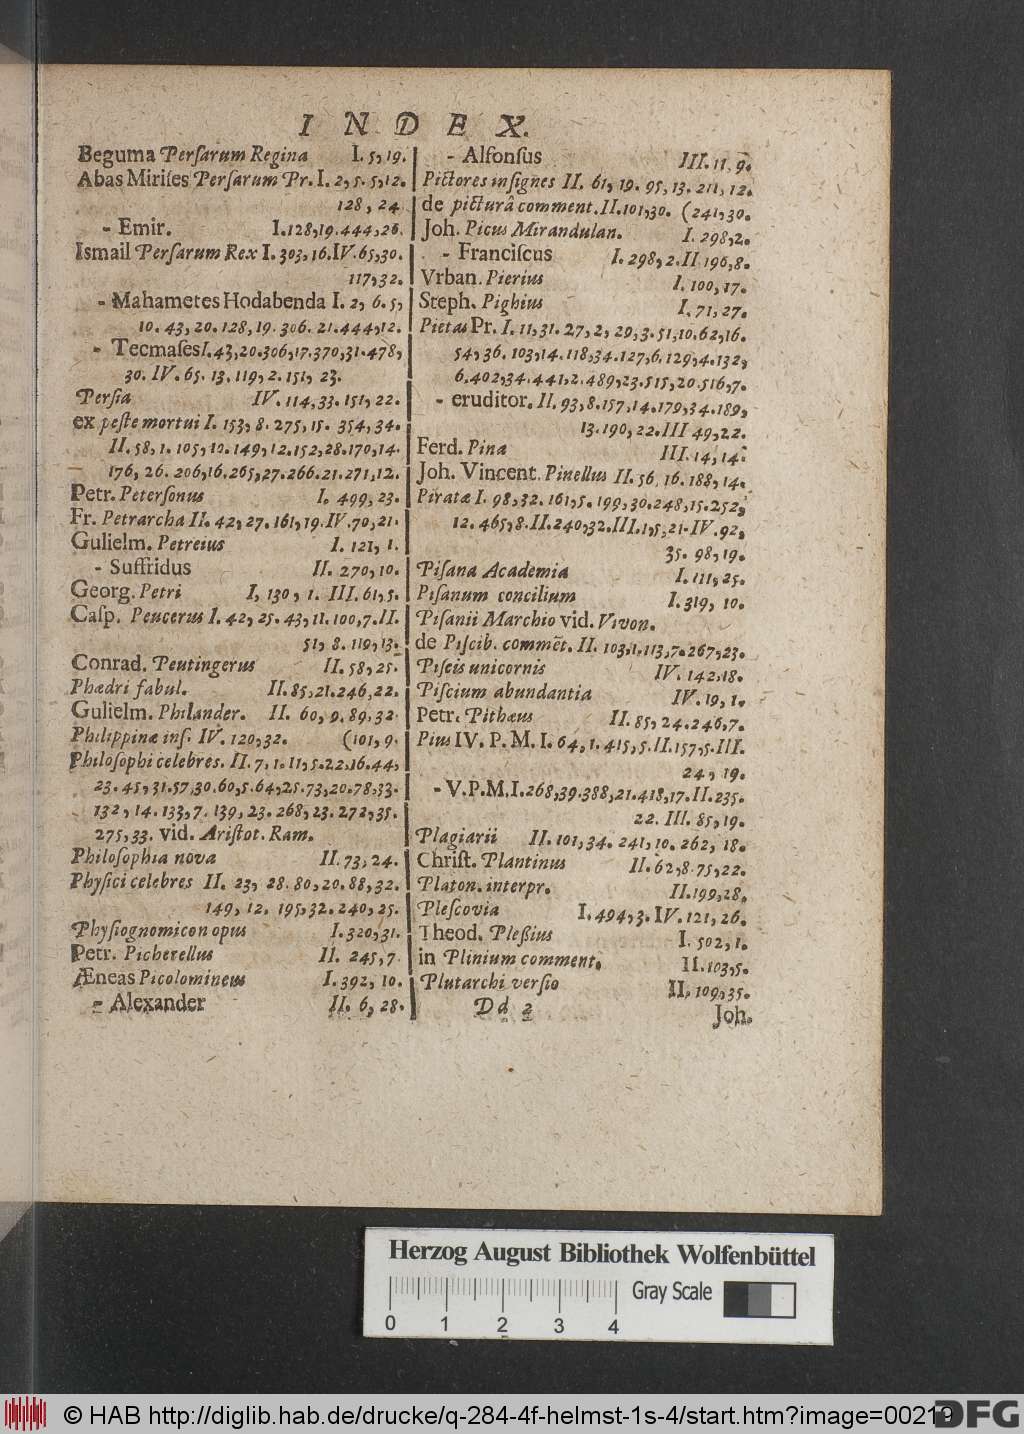 INDEX.
Beguma Perſarum Regina I. 5, 19.
Abas Miriſes Perſarum Pr. I. 2, 5. 5, 12.
128, 24
- Emir. I. 128, 19. 444, 26.
Ismail Perſarum Rex I. 303, 16. IV. 65, 30.
117, 32.
- Mahametes Hodabenda I. 2, 6. 5,
10. 43, 20. 128, 19. 306. 21. 444, 12.
- Tecmaſes I. 43, 20. 306, 17. 370, 31. 478,
30. IV. 65. 13. 119, 2. 151, 23.
Perſia IV. 114, 33. 151, 22.
ex peſte mortui I. 153, 8. 275, 15. 354, 34.
II. 58, 1. 105, 10. 149, 12. 152, 28. 170, 14.
176, 26. 206, 16. 265, 27. 266. 21. 271, 12.
Petr. Peterſonus I. 499, 23.
Fr. Petrarcha II. 42, 27. 161, 19. IV. 70, 21.
Gulielm. Petreius I. 121, 1.
- Suffridus II. 270, 10.
Georg. Petri I, 130, 1. III. 61, 5.
Caſp. Peucerus I. 42, 25. 43, 11. 100, 7. II.
51, 8. 119, 13.
Conrad. Peutingerus II. 58, 25.
Phædri fabul. II. 85, 21. 246, 22.
Gulielm. Philander. II. 60, 9. 89, 32
Philippinæ inſ. IV. 120, 32. (101, 9.
Philoſophi celebres. II. 7, 1. 11, 5. 22, 16. 44,
23. 45, 31. 57, 30. 60, 5. 64, 25. 73, 20. 78, 33.
132, 14. 133, 7. 139, 23. 268, 23. 272, 35.
275, 33. vid. Ariſtot. Ram.
Philoſophia nova II. 73, 24.
Phyſici celebres II. 23, 28. 80, 20. 88, 32.
149, 12. 195, 32. 240, 25.
Phyſiognomicon opus I. 320, 31.
Petr. Picherellus II. 245, 7.
Æneas Picolomineus I. 392, 10.
- Alexander II. 6, 28.
- Alfonſus III. 11, 9.
Pictores inſignes II. 61, 19. 95, 13. 211, 12.
de picturâ comment. II. 101, 30. (241, 30.
Joh. Picus Mirandulan. I. 298, 2.
- Franciſcus I. 298, 2. II 196, 8.
Vrban. Pierius I. 100, 17.
Steph. Pighius I. 71, 27.
Pietas Pr. I. 11, 31. 27, 2, 29, 3. 51, 10. 62, 16.
54, 36. 103, 14. 118, 34. 127, 6. 129, 4. 132,
6. 402, 34. 441, 2. 489, 23. 515, 20. 516, 7.
- eruditor. II. 93, 8. 157, 14. 179, 34. 189,
13. 190, 22. III 49, 22.
Ferd. Pina III. 14, 14.
Joh. Vincent. Pinellus II. 56, 16. 188, 14.
Piratæ I. 98, 32. 161, 5. 199, 30. 248, 15. 252,
12. 465, 8. II. 240, 32. III. 1, 5, 21. IV. 92,
35. 98, 19.
Piſana Academia I. 111, 25.
Piſanum concilium I. 319, 10.
Piſanii Marchio vid. Vivon.
de Piſcib. commẽt. II. 103, 1. 113, 7. 267, 23.
Piſcis unicornis IV. 142, 18.
Piſcium abundantia IV. 19, 1.
Petr. Pithæus II. 85, 24. 246, 7.
Pius IV. P. M. I. 64, 1. 415, 5. II. 157, 5. III.
24, 19.
- V. P. M. I. 268, 39. 388, 21. 418, 17. II. 235.
22. III. 85, 19.
Plagiarii II. 101, 34. 241, 10. 262, 18.
Chriſt. Plantinus II. 62, 8. 75, 22.
Platon. interpr. II. 199, 28.
Pleſcovia I. 494, 3. IV. 121, 26.
Theod. Pleßius I. 502, 1.
in Plinium comment. II. 103, 5.
Plutarchi verſio II. 109, 35.
Dd 2 Joh.
Herzog August Bibliothek Wolfenbüttel
Gray Scale
0 1 2 3 4
© HAB http://diglib.hab.de/drucke/q-284-4f-helmst-1s-4/start.htm?image=00219
DFG